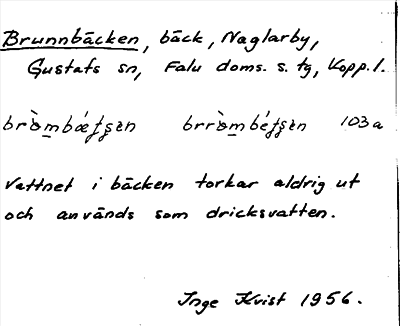 Brunnbäcken, bäck, Naglarby,
Gustafs sn, Falu doms. s. tg, Kopp. l.
103a
Vattnet i bäcken torkar aldrig ut
och används som dricksvatten.
Inge Kvist 1956.